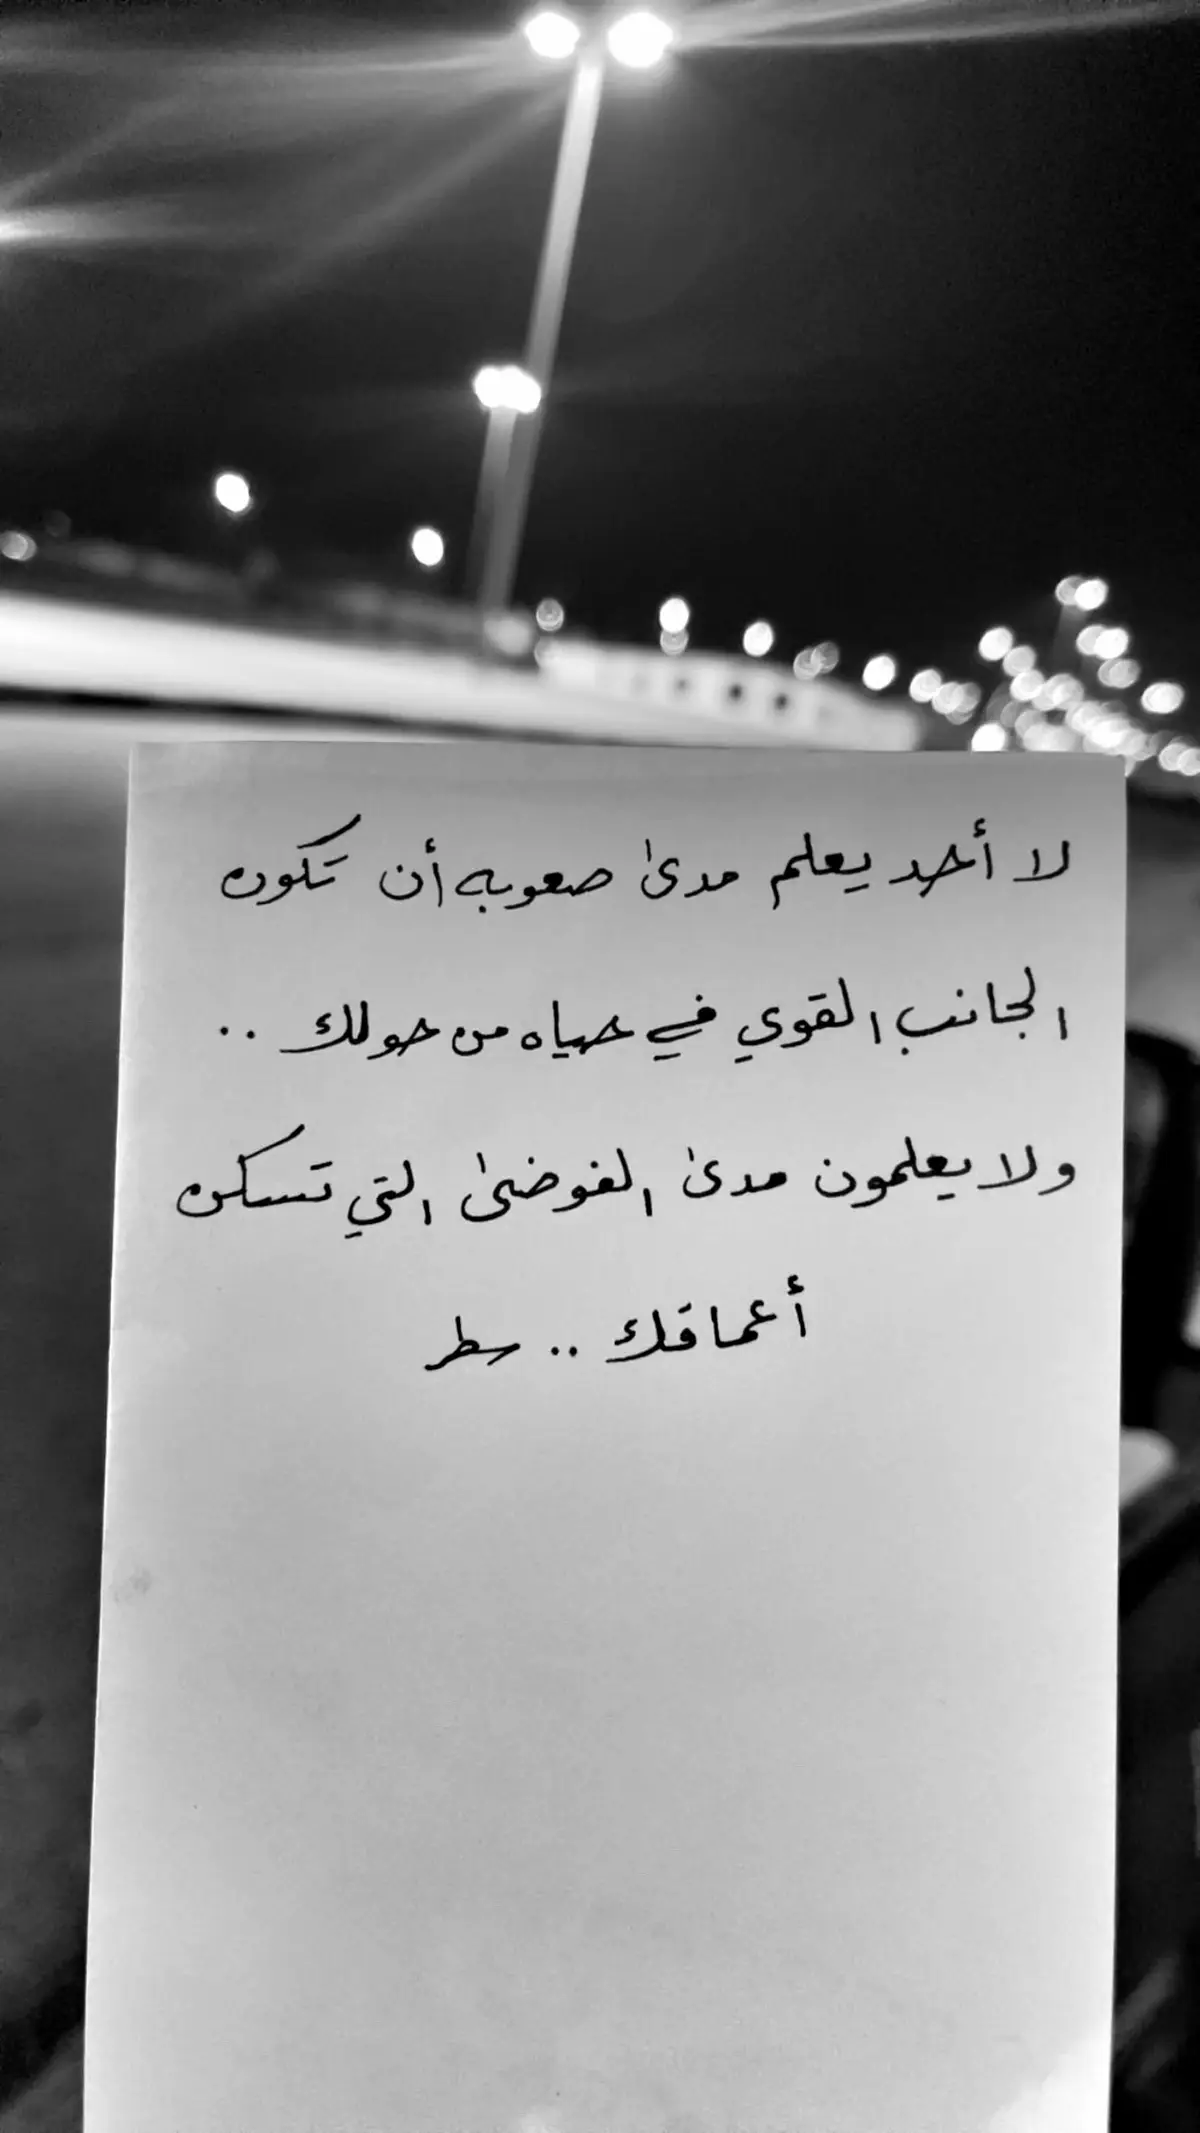 لا أحد يعلم مدى صعوبه أن تكون
الجانب القوي في حياه من حولك ..
ولا يعلمون مدى الفوضى التي تسكن
أعماقك .. سطر